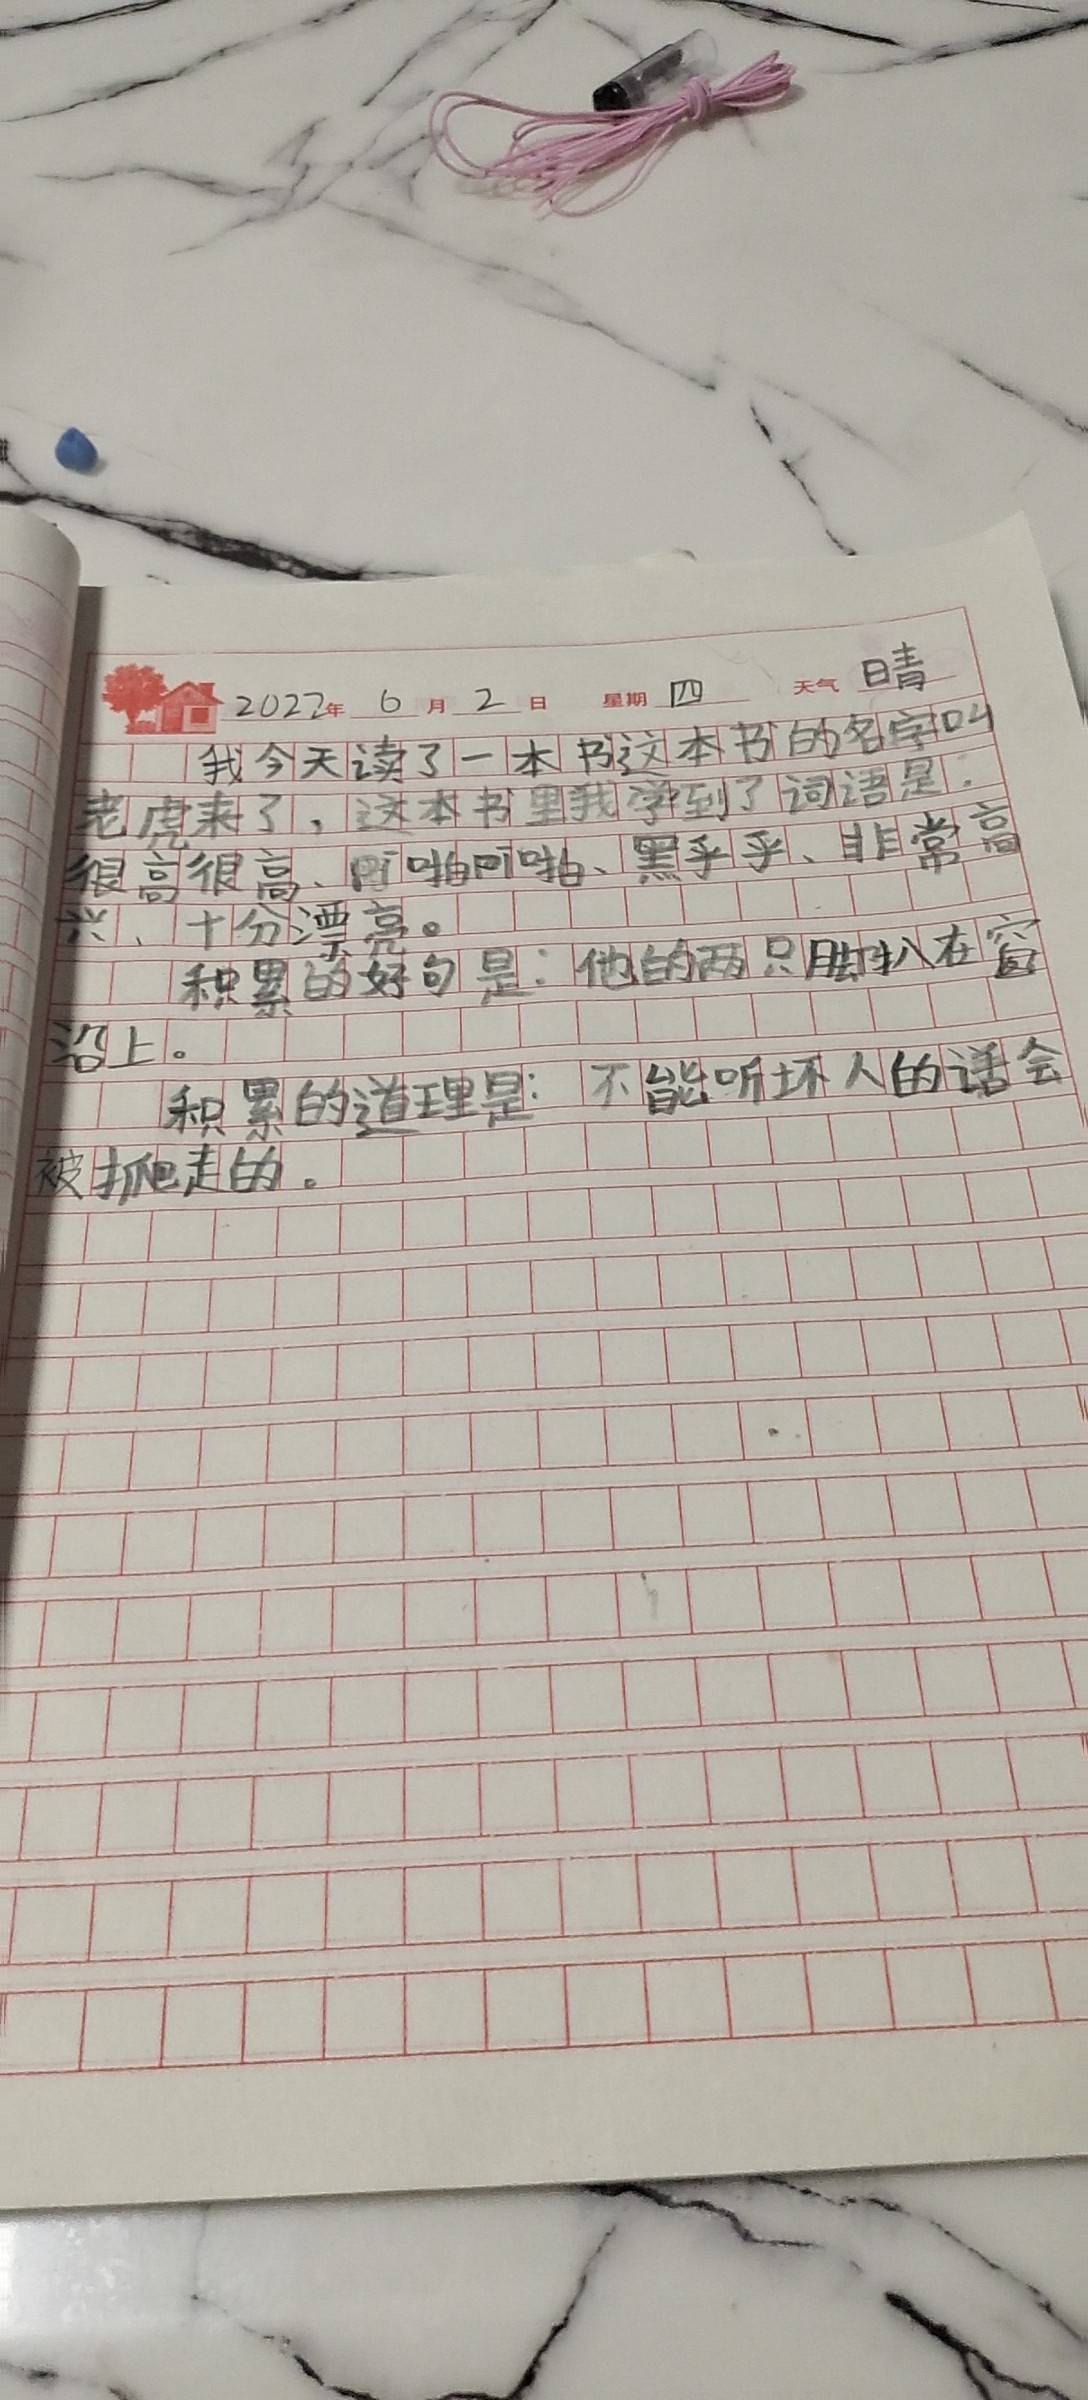 2022年 6月2日 星期四 天气 晴
我今天读了一本书这本书的名字叫
老虎来了，这本书里我学到了词语是：
很高很高、啪啪、黑乎乎、非常高
兴、十分漂亮。
积累的好句是：他的两只脚扒在窗
沿上。
积累的道理是：不能听坏人的话会
被抓走的。